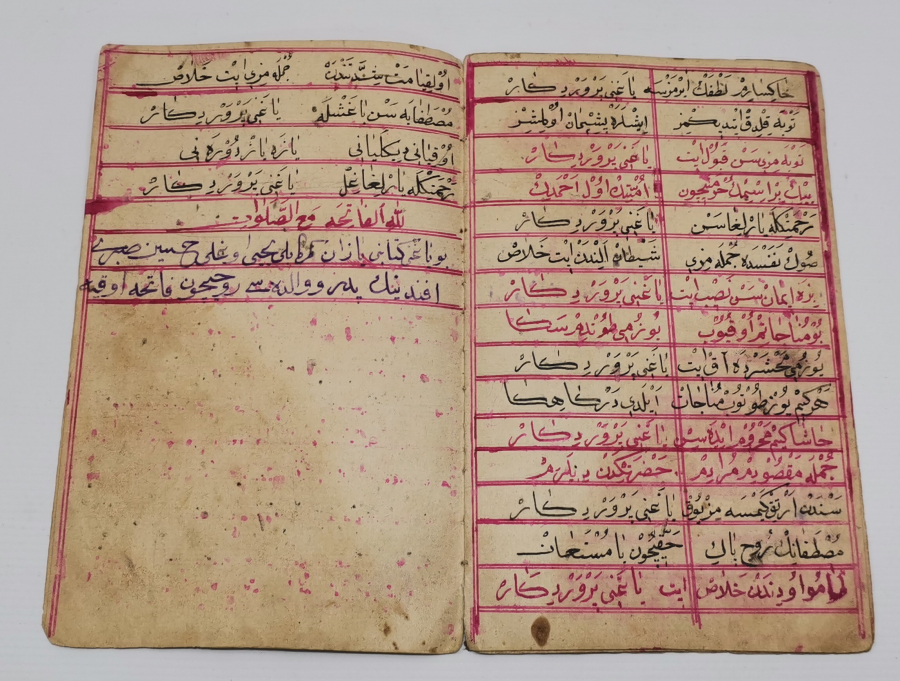 خاكسارم لطفك ايرمزسه يا غني پرورد كار
توبه قلدق ايتديكمز ايشلره پشيمان اولمشز
توبه مزي سن قبول ايت يا غني پرورد كار
بيك بر اسمك حرمتيچون امتندن اول احمدك
رحمتكله يارلغاسن يا غني پرورد كار
صوك نفسده جمله مزي شيطان الندن ايت خلاص
بزه ايمان سن نصيب ايت يا غني پرورد كار
بو مناجاتم اوقيوب يوزمي طوندم سكا
يوزمي محشرده آق ايت يا غني پرورد كار
هركيم يوز طوتوب مناجات ايلدي دركاهكا
حاشا كيم محروم ايده سن يا غني پرورد كار
جمله مقصوديم مراديم حضرتكدن ديلرم
سندن ارتق كمسه مز يوق يا غني پرورد كار
مصطفانك روح پاك حقيچون يا مستعان
طامو اودندن خلاص ايت يا غني پرورد كار
اول قيامت شدتندن جمله مزي ايت خلاص
مصطفايه سن باغشله يا غني پرورد كار
اوقياني ديكلياني يازه ياز دوره ني
رحمتكله يارلغاغل يا غني پرورد كار
لله الفاتحه مع الصلوات
بونا غركتابي يازان يحيى اوغلى حسين
افندينك پدر و والده سي روحيچون فاتحه اوقيه